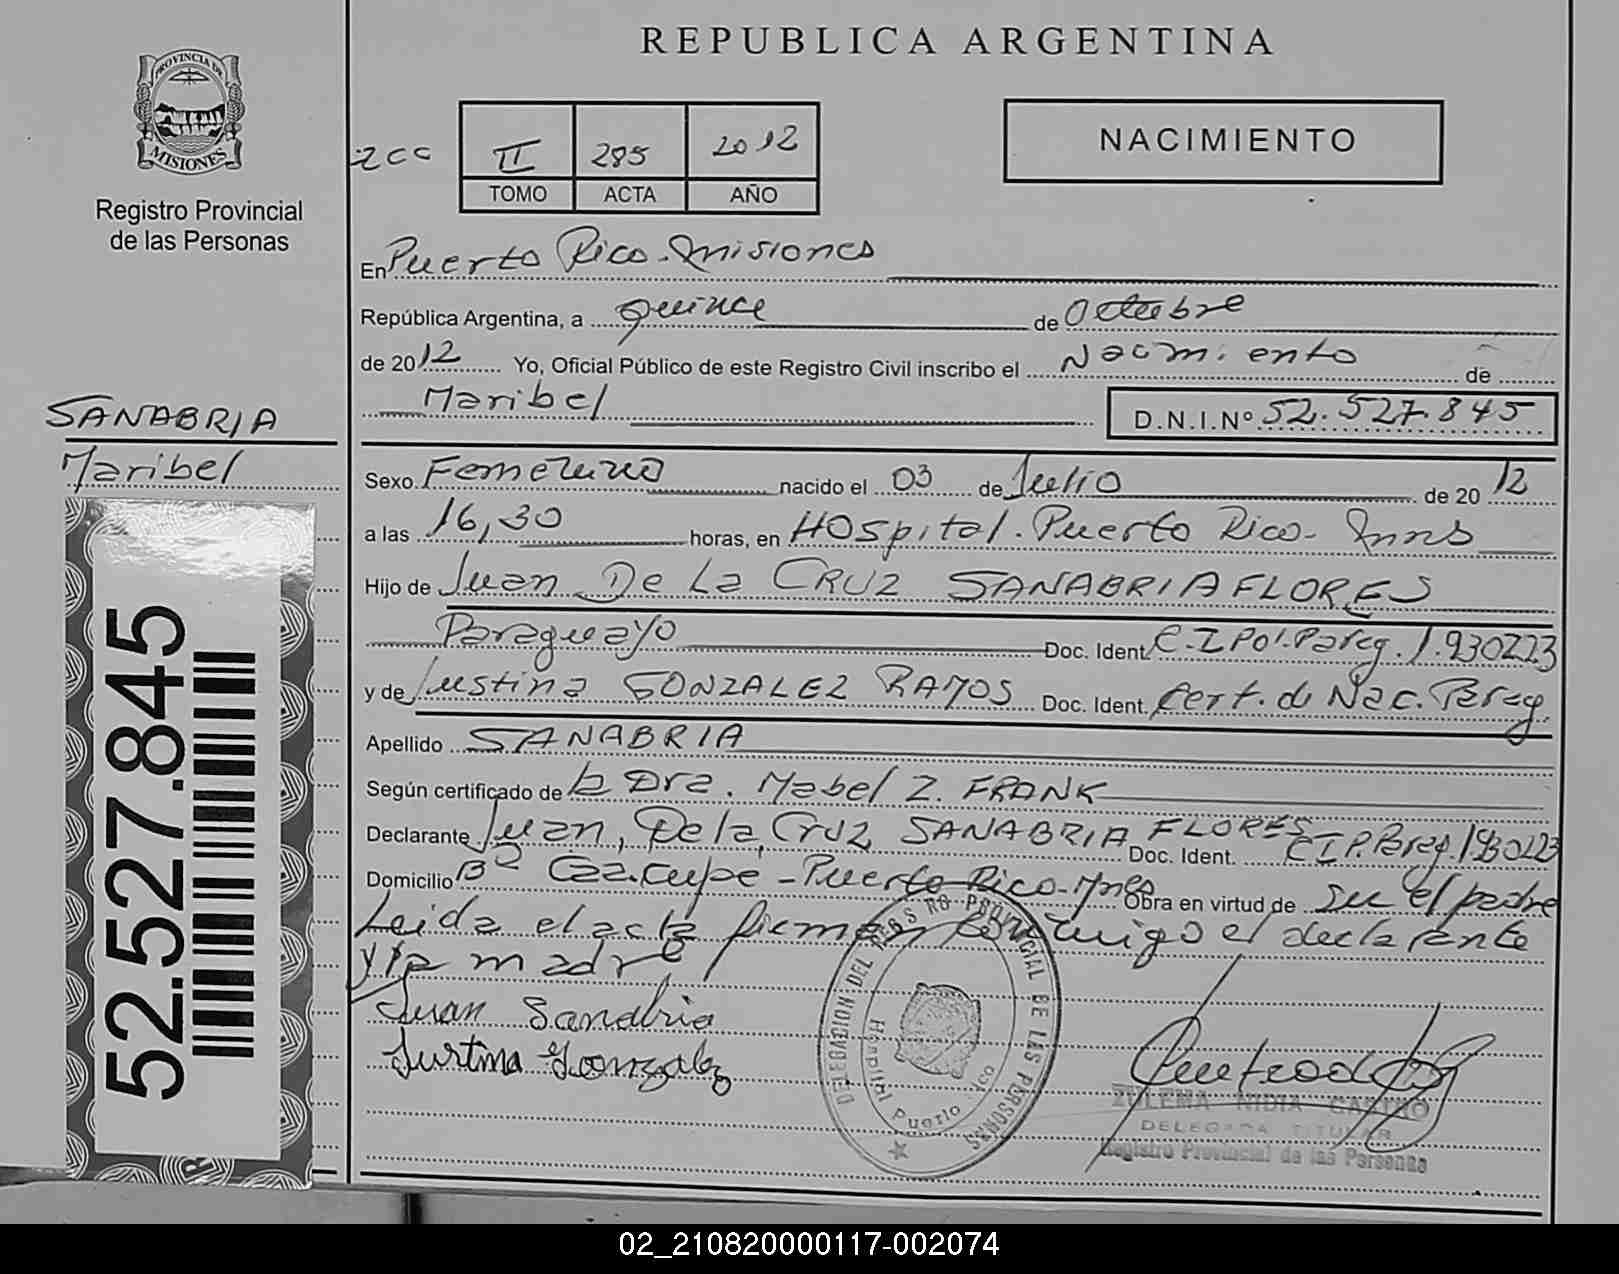 REPUBLICA ARGENTINA
PROVINCIA DE
MISIONES
Registro Provincial
de las Personas
II 285 2012
TOMO ACTA AÑO
NACIMIENTO
En Puerto Rico - Misiones
República Argentina, a quince de Octubre
de 2012 Yo, Oficial Público de este Registro Civil inscribo el Nacimiento de
Maribel D.N.I.Nº 52.527.845
SANABRIA
Maribel
Sexo Femenino nacido el 03 de Julio de 2012
a las 16,30 horas, en Hospital. Puerto Rico - Mnes
Hijo de Juan De La CRUZ SANABRIA FLORES
Paraguayo Doc. Ident. C.I Pol. Parag. 1.930223
y de Justina GONZALEZ RAMOS Doc. Ident. Cert. de Nac. Parag.
Apellido SANABRIA
Según certificado de la Dra. Mabel Z. FRANK
Declarante Juan, De la Cruz SANABRIA FLORES Doc. Ident. C I P. Parag. 1930223
Domicilio Bº Caacupe - Puerto Rico - Mnes Obra en virtud de Su el padre
Leida el acta firman conmigo el declarante
y la madre
Juan Sanabria
Justina Gonzalez
52.527.845
DELEGACION DEL REGISTRO PROVINCIAL DE LAS PERSONAS
Hospital Puerto Rico
ZULEMA NIDIA CASTRO
DELEGADA TITULAR
Registro Provincial de las Personas
02_210820000117-002074